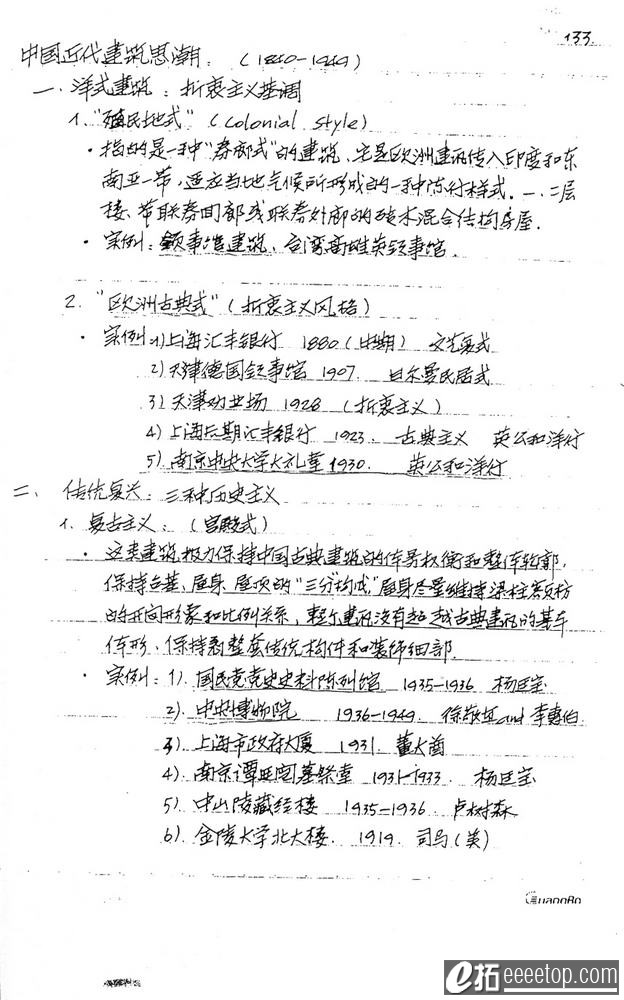 133
中国近代建筑思潮：（1840-1949）
一、洋式建筑：折衷主义基调
1、"殖民地式"（colonial style）
·指的是一种"券廊式"的建筑、它是欧洲建筑传入印度和东
南亚一带，适应当地气候所形成的一种流行样式．一、二层
楼、带联券回廊或联券外廊的砖木混合结构房屋．
·实例：领事馆建筑、台湾高雄英领事馆．
2．"欧洲古典式"（折衷主义风格）
·实例：1)上海汇丰银行 1880（早期） 文艺复式
2)天津德国领事馆 1907． 日尔曼民居式
3)天津劝业场 1928 （折衷主义）
4)上海后期汇丰银行 1923． 古典主义 英公和洋行
5)南京中央大学大礼堂1930． 英公和洋行
二、传统复兴：三种历史主义
1、复古主义：（宫殿式）
·这类建筑极力保持中国古典建筑的体量权衡和整体轮廓，
保持台基、屋身、屋顶的"三分"构成，屋身尽量维持梁柱额枋
的开间形象和比例关系，整个建筑没有超越古典建筑的基本
体形、保持着整套传统构件和装饰细部．
·实例：1)．国民党党史史料陈列馆 1935-1936 杨廷宝
2)．中央博物院 1936-1949 徐敬直and李惠伯
3)．上海市政府大厦 1931．董大酉
4)．南京谭延闿墓祭堂 1931-1933． 杨廷宝
5)．中山陵藏经楼 1935-1936．卢树森
6)．金陵大学北大楼． 1919．司马（美）
GuangBo
e拓 eeeetop.com